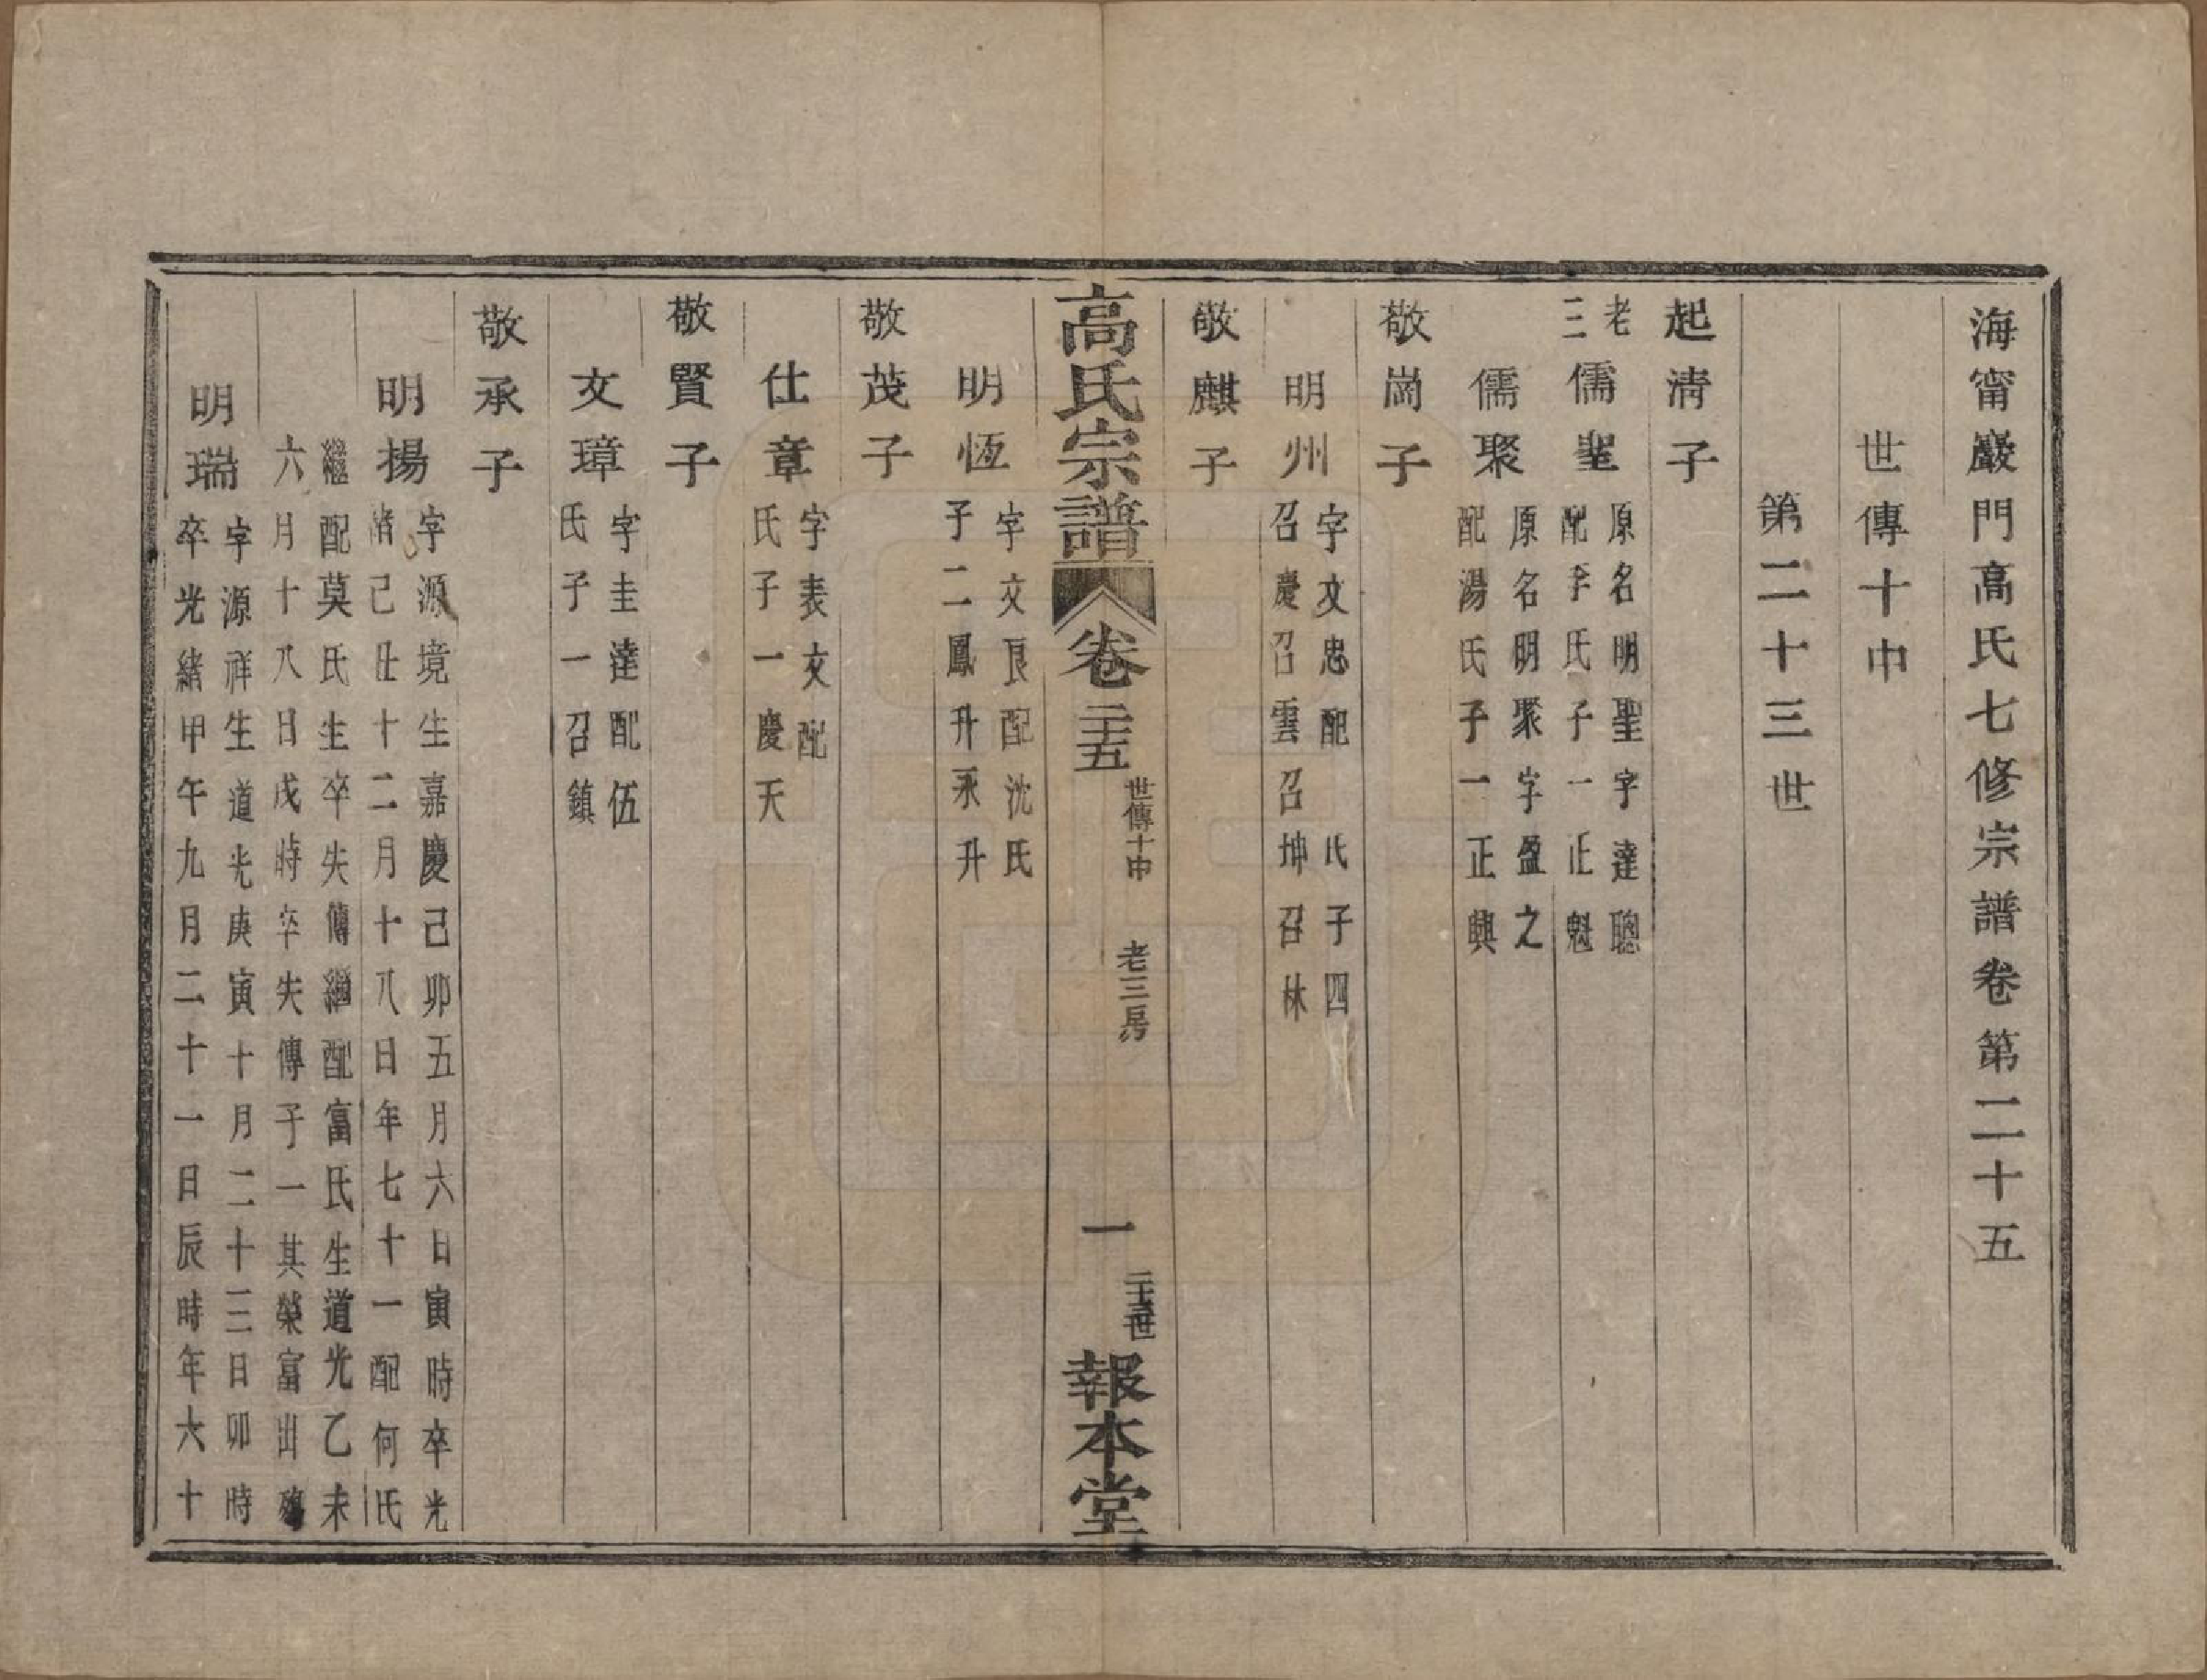 海甯巖門高氏七修宗譜卷第二十五
世傳十中
第二十三世
起淸子
老三
儒聖
原名明聖字達聰
配李氏子一正魁
儒聚
原名明聚字盈之
配湯氏子一正興
敬崗子
明州
字文忠配 氏子四
召慶召雲召坤召林
敬麒子
高氏宗譜
卷二十五
世傳十中
老三房
一
二十三世
報本堂
明恆
字文良配沈氏
子二鳳升永升
敬茂子
仕章
字表文配
氏子一慶天
敬賢子
文璋
字圭達配伍
氏子一召鎮
敬承子
明揚
字源境生嘉慶己卯五月六日寅時卒光
緒己丑十二月十八日年七十一配何氏
繼配莫氏生卒失傳繼配富氏生道光乙未
六月十八日戌時卒失傳子一其榮富出殤
明瑞
字源祥生道光庚寅十月二十三日卯時
卒光緒甲午九月二十一日辰時年六十